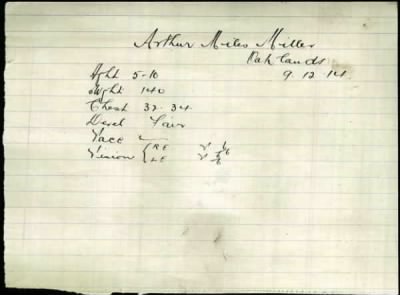 Arthur Miles Miller
Oaklands
9.12.14
Hght 5-10
Wght 140
Chest 32.34.
Devel Fair
Vacc
Vision { RE V 6/6
LE V 6/6